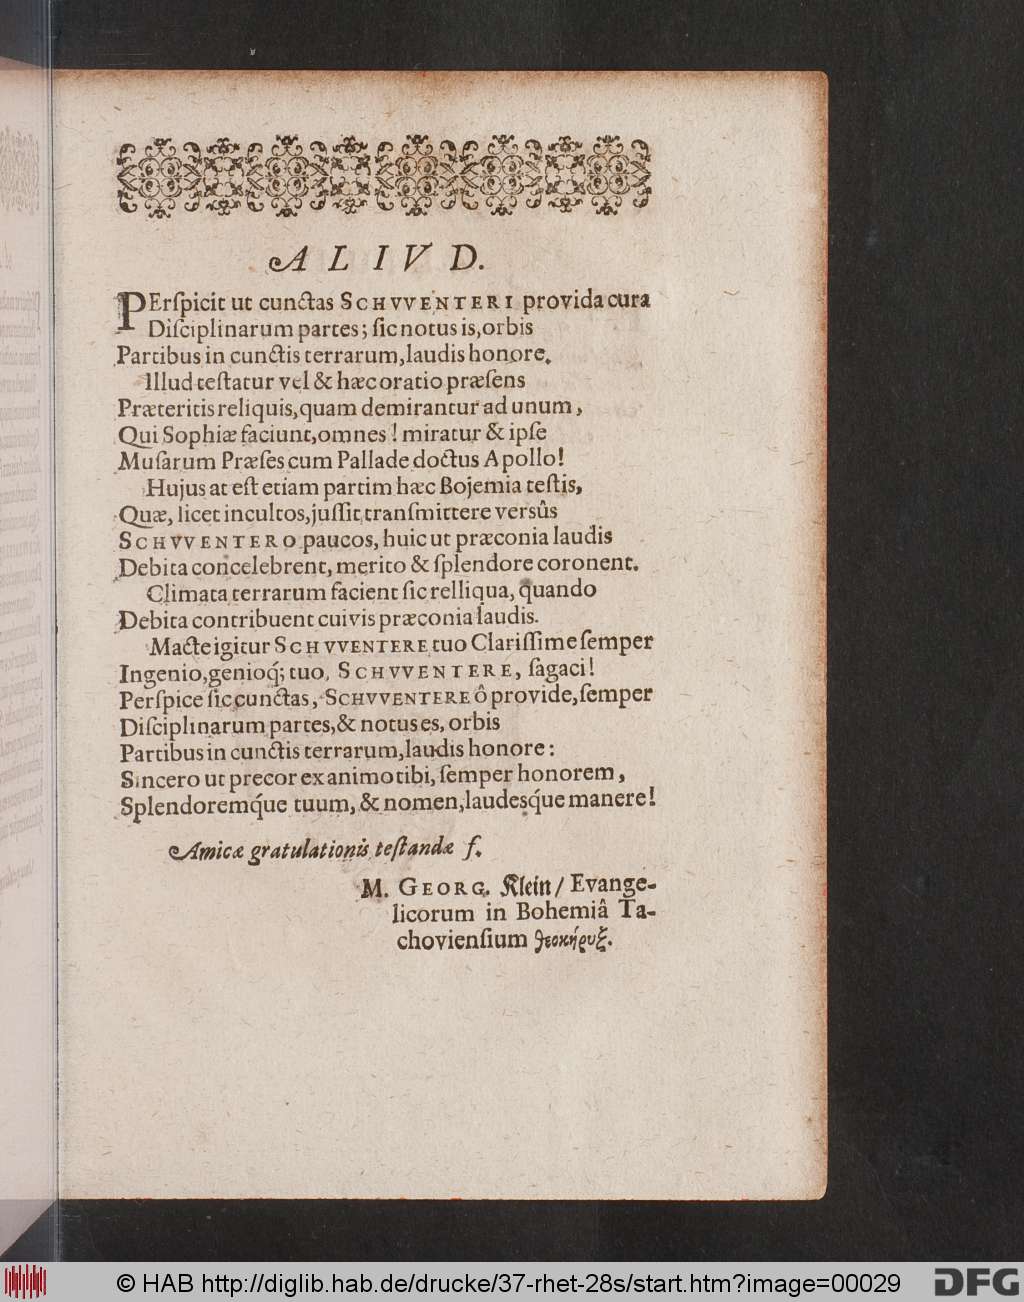 ALIVD.
PErſpicit ut cunctas SCHVVENTERI provida cura
Diſciplinarum partes; ſic notus is, orbis
Partibus in cunctis terrarum, laudis honore.
Illud teſtatur vel & hæc oratio præſens
Præteritis reliquis, quam demirantur ad unum,
Qui Sophiæ faciunt, omnes! miratur & ipſe
Muſarum Præſes cum Pallade doctus Apollo!
Hujus at eſt etiam partim hæc Bojemia teſtis,
Quæ, licet incultos, juſſit transmittere versûs
SCHVVENTERO paucos, huic ut præconia laudis
Debita concelebrent, merito & ſplendore coronent.
Climata terrarum facient ſic relliqua, quando
Debita contribuent cuivis præconia laudis.
Macte igitur SCHVVENTERE tuo Clariſſime ſemper
Ingenio, genioq́; tuo, SCHVVENTERE, ſagaci!
Perſpice ſic cunctas, SCHVVENTERE ô provide, ſemper
Diſciplinarum partes, & notus es, orbis
Partibus in cunctis terrarum, laudis honore:
Sincero ut precor ex animo tibi, ſemper honorem,
Splendoremq́ue tuum, & nomen, laudesq́ue manere!
Amicæ gratulationis teſtandæ f.
M. GEORG. Klein / Evange-
licorum in Bohemiâ Ta-
chovienſium θεοκήρυξ.
© HAB http://diglib.hab.de/drucke/37-rhet-28s/start.htm?image=00029
DFG